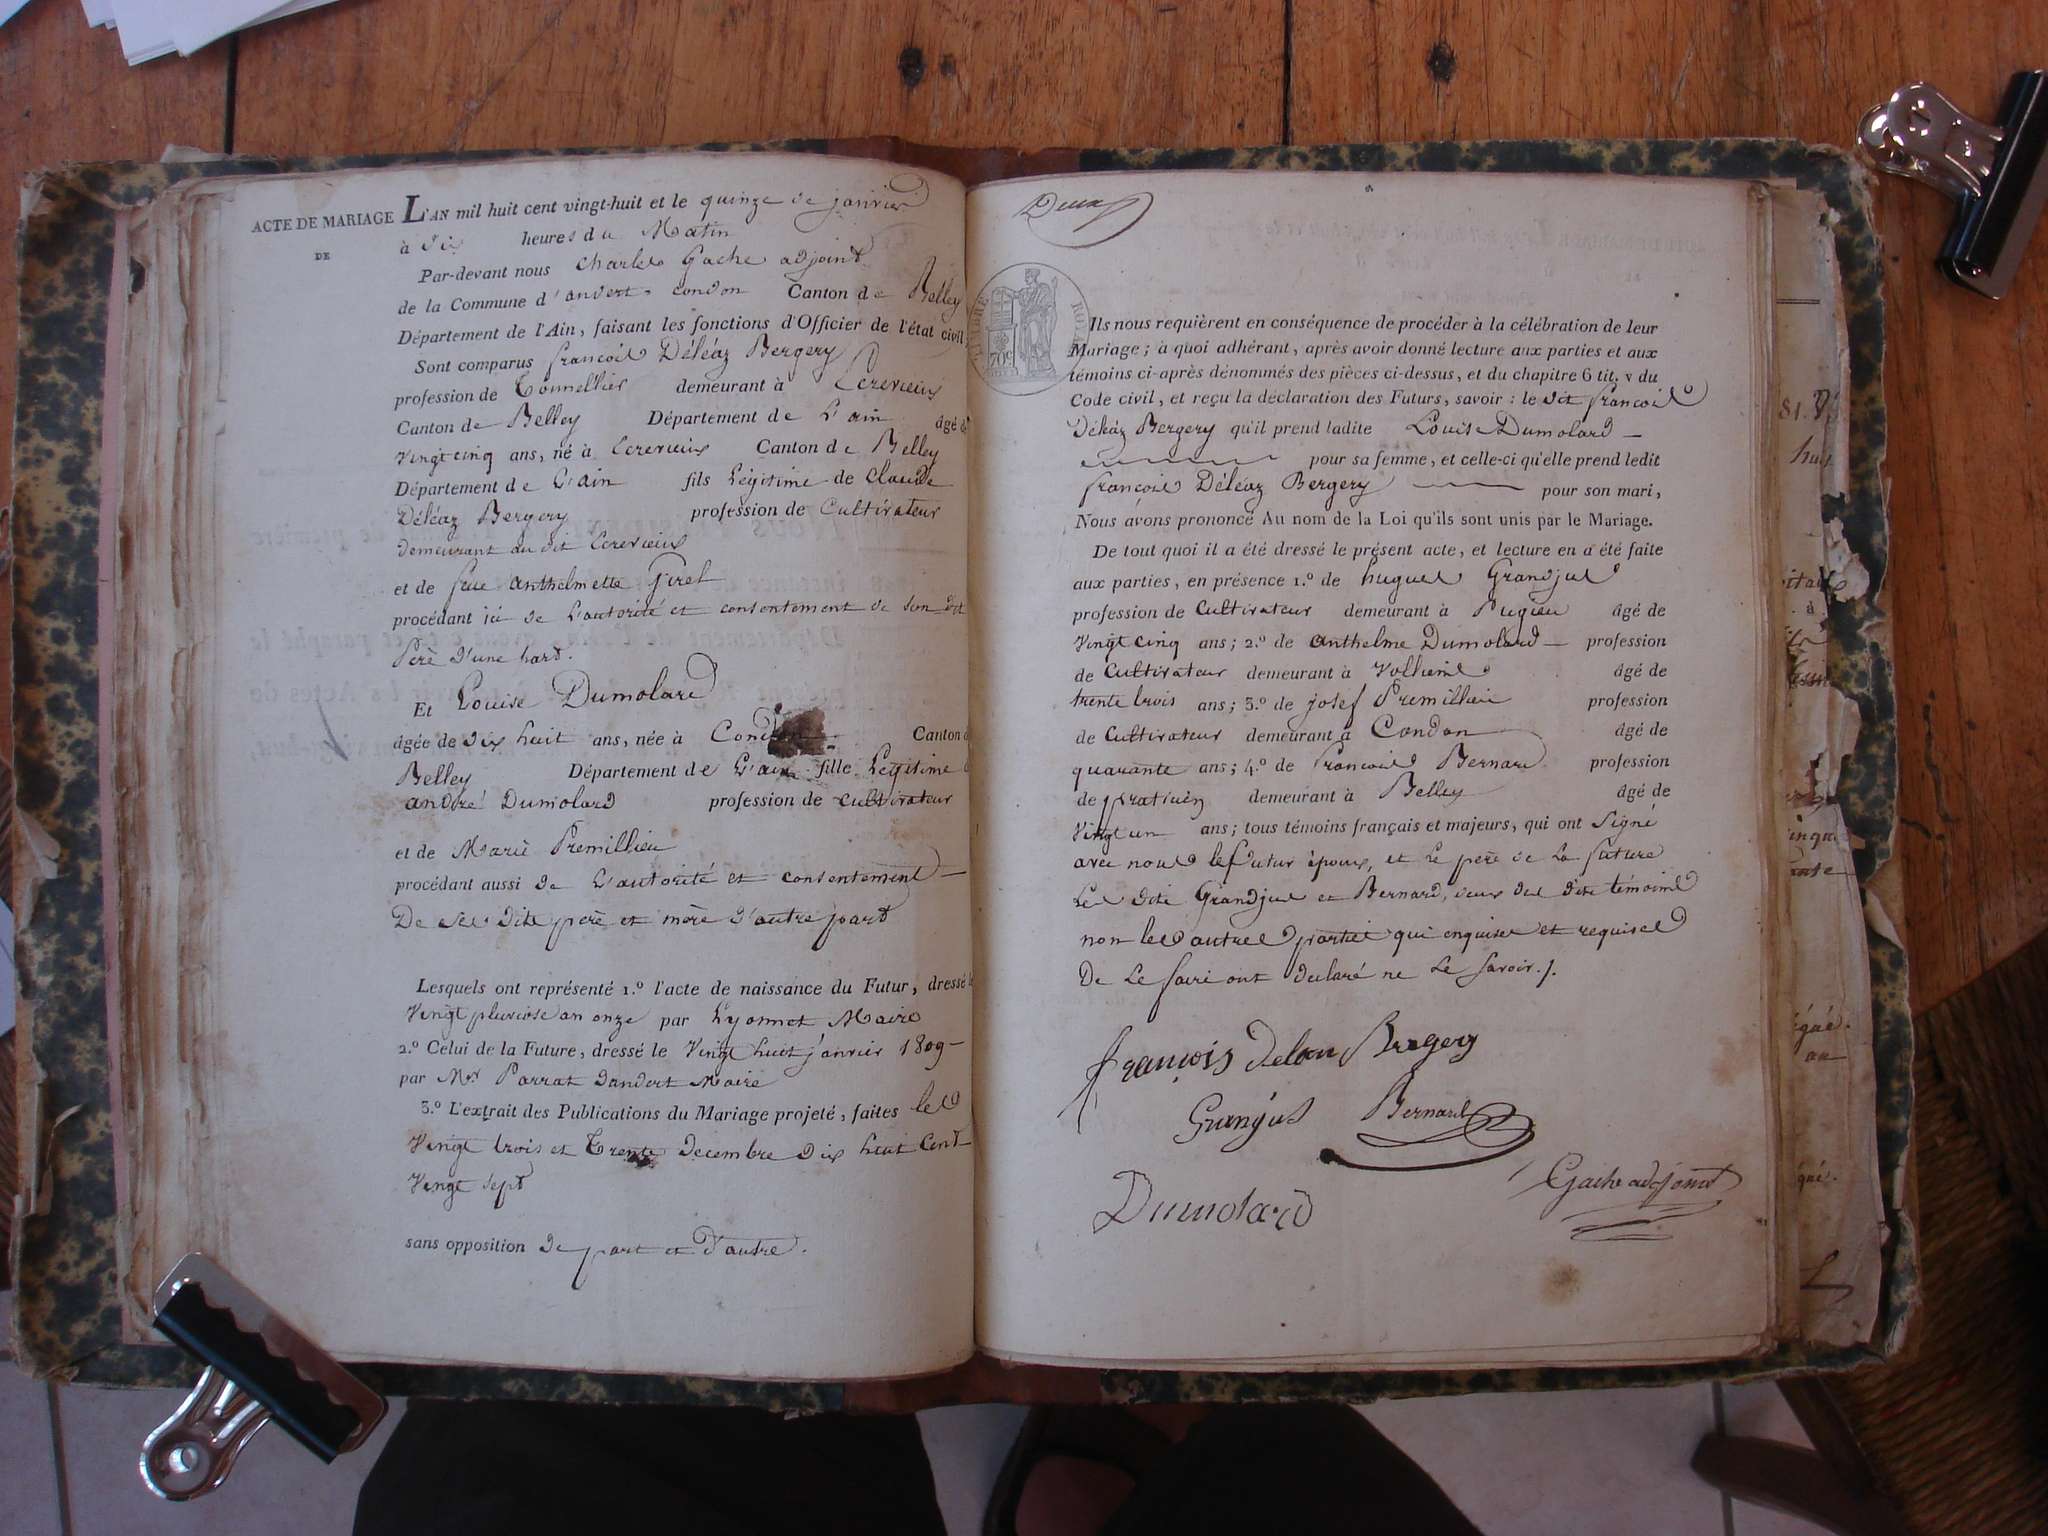 ACTE DE MARIAGE
DE
L'AN mil huit cent vingt-huit et le quinze de janvier
à dix heures du Matin
Par-devant nous Charles Gache adjoint
de la Commune d'andert-condon Canton de Belley
Département de l'Ain, faisant les fonctions d'Officier de l'état civil,
Sont comparus françois Déléaz Bergery
profession de Tonnellier demeurant à Ecrevieux
Canton de Belley Département de L'ain âgé de
vingt cinq ans, né à Ecrevieux Canton de Belley
Département de L'ain fils Légitime de Claude
Déléaz Bergery profession de Cultivateur
demeurant au dit Ecrevieux
et de feue anthelmette Jirel
procédant ici de L'autorité et consentement de son dit
Père d'une part.
Et Louise Dumolard
âgée de dix huit ans, née à Condon Canton d
Belley Département de L'ain fille Légitime d
andré Dumolard profession de cultivateur
et de Marie Premillieu
procédant aussi de L'autorité et consentement
De ses dits père et mère d'autre part
Lesquels ont représenté 1.º l'acte de naissance du Futur, dressé le
Vingt pluviose an onze par Lyonnet Maire
2.º Celui de la Future, dressé le Vingt huit janvier 1809 -
par Mr Parrat dandert Maire
3.º L'extrait des Publications du Mariage projeté, faites les
Vingt trois et Trente Decembre dix huit Cent
Vingt sept
sans opposition de part et d'autre.
Deux
TIMBRE ROYAL
70c
Ils nous requièrent en conséquence de procéder à la célébration de leur
Mariage; à quoi adhérant, après avoir donné lecture aux parties et aux
témoins ci-après dénommés des pièces ci-dessus, et du chapitre 6 tit. v du
Code civil, et reçu la déclaration des Futurs, savoir: le dit françois
Déléaz Bergery qu'il prend ladite Louise Dumolard
pour sa femme, et celle-ci qu'elle prend ledit
françois Déléaz Bergery pour son mari,
Nous avons prononcé Au nom de la Loi qu'ils sont unis par le Mariage.
De tout quoi il a été dressé le présent acte, et lecture en a été faite
aux parties, en présence 1.º de hugues Grandjus
profession de Cultivateur demeurant à Pugieu âgé de
Vingt cinq ans; 2.º de anthelme Dumolard profession
de Cultivateur demeurant à Vollien âgé de
trente trois ans; 3.º de josef Premillieu profession
de Cultivateur demeurant à Condon âgé de
quarante ans; 4.º de François Bernard profession
de praticien demeurant à Belley âgé de
Vingt un ans; tous témoins français et majeurs, qui ont Signé
avec nous le futur époux, et le père de La future
Les dits Grandjus et Bernard, deux des dits témoins
non les autres parties qui enquises et requises
De Le faire ont declaré ne Le Savoir./.
françois Deleau Bregery
Granjus Bernard
Dumolard Gache adjoint